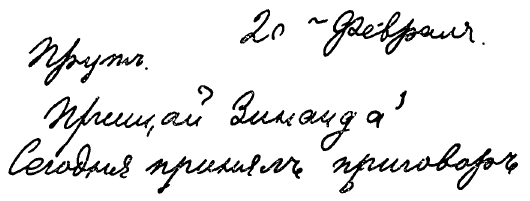 20 ~ Февраля.
Прощай Зинаида!
Сегодня принялъ приговоръ